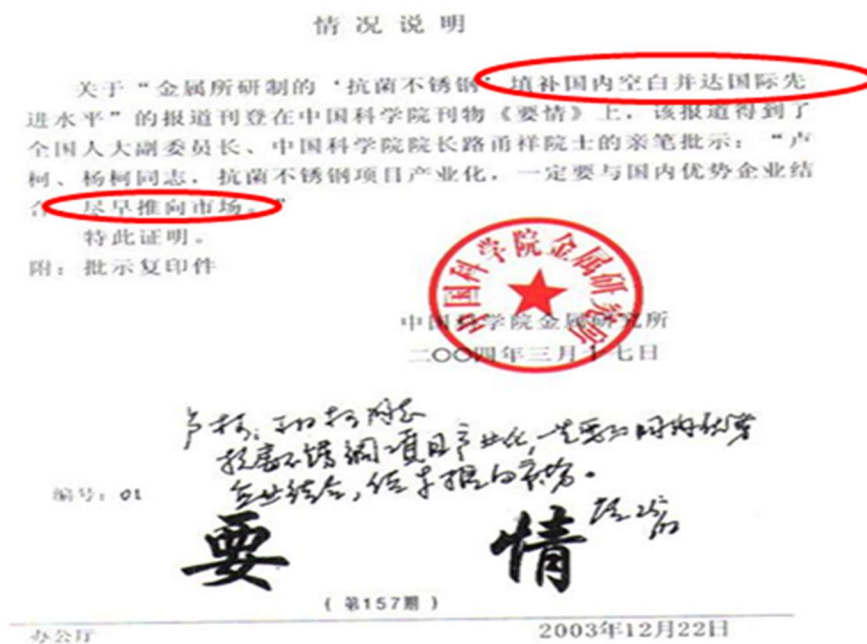 情况说明
关于“金属所研制的‘抗菌不锈钢’填补国内空白并达国际先
进水平”的报道刊登在中国科学院刊物《要情》上，该报道得到了
全国人大副委员长、中国科学院院长路甬祥院士的亲笔批示：“卢
柯、杨柯同志，抗菌不锈钢项目产业化，一定要与国内优势企业结
合，尽早推向市场。”
特此证明。
附：批示复印件
中国科学院金属研究所
中国科学院金属研究所
二〇〇四年三月十七日
卢柯、杨柯同志
抗菌不锈钢项目产业化，一定要与国内优势
企业结合，尽早推向市场。
编号：01
要情
（第157期）
办公厅
2003年12月22日